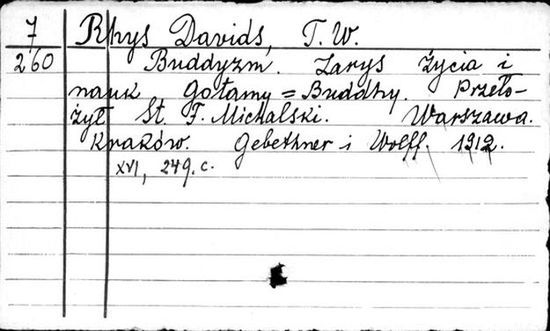 7 Rhys Davids, T. W.
260 Buddyzm. Zarys życia i
nauk Gotamy = Buddhy. Przeło-
żył St. F. Michalski. Warszawa.
Kraków. Gebethner i Wolff. 1912.
XVI, 249. c.